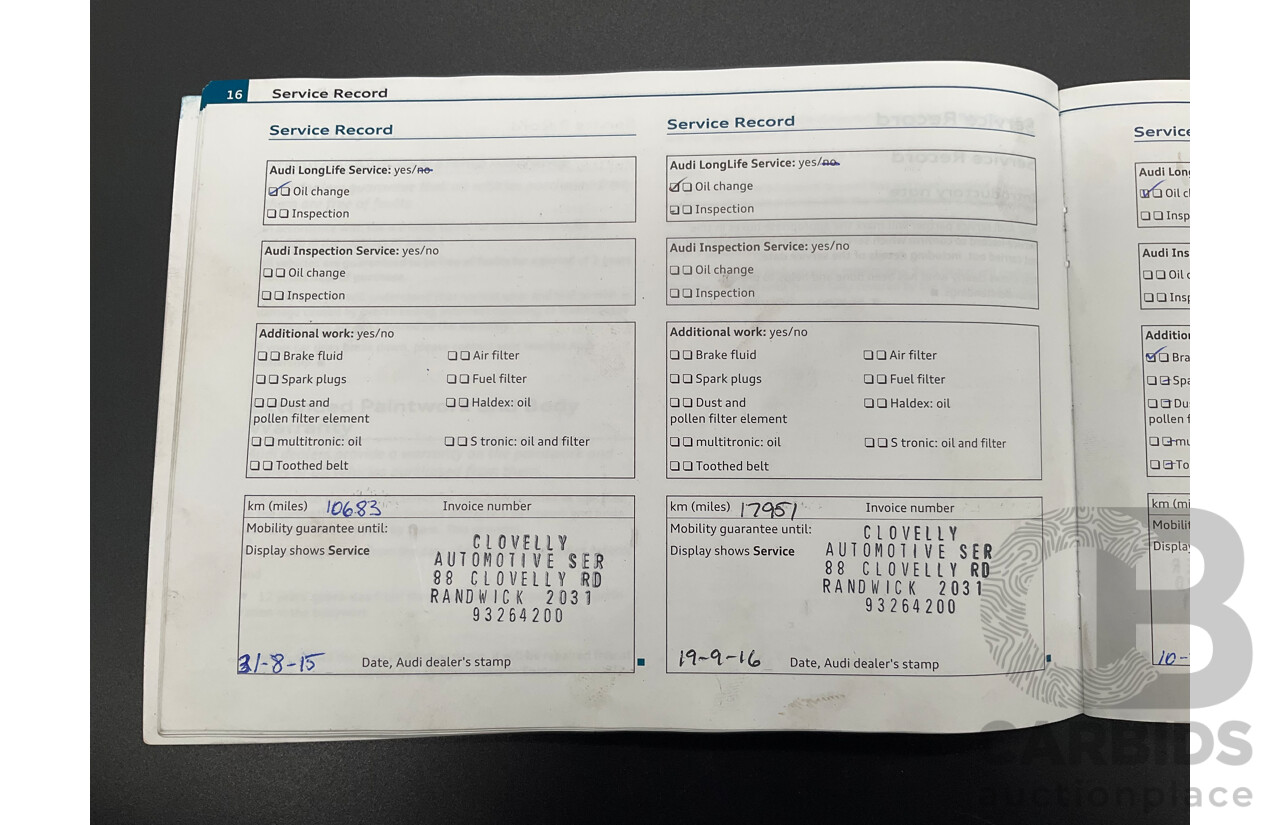 16 Service Record
Service Record
Audi LongLife Service: yes/no
Oil change
Inspection
Audi Inspection Service: yes/no
Oil change
Inspection
Additional work: yes/no
Brake fluid Air filter
Spark plugs Fuel filter
Dust and Haldex: oil
pollen filter element
multitronic: oil S tronic: oil and filter
Toothed belt
km (miles) 10683 Invoice number
Mobility guarantee until:
Display shows Service
CLOVELLY
AUTOMOTIVE SER
88 CLOVELLY RD
RANDWICK 2031
93264200
31-8-15 Date, Audi dealer's stamp
Service Record
Audi LongLife Service: yes/no
Oil change
Inspection
Audi Inspection Service: yes/no
Oil change
Inspection
Additional work: yes/no
Brake fluid Air filter
Spark plugs Fuel filter
Dust and Haldex: oil
pollen filter element
multitronic: oil S tronic: oil and filter
Toothed belt
km (miles) 17951 Invoice number
Mobility guarantee until:
Display shows Service
CLOVELLY
AUTOMOTIVE SER
88 CLOVELLY RD
RANDWICK 2031
93264200
19-9-16 Date, Audi dealer's stamp
Service
Audi Lon
Oil c
Insp
Audi Ins
Oil c
Insp
Addition
Bra
Spa
Du
pollen f
mu
To
km (mi
Mobilit
Display
10-
CARBIDS
auctionplace